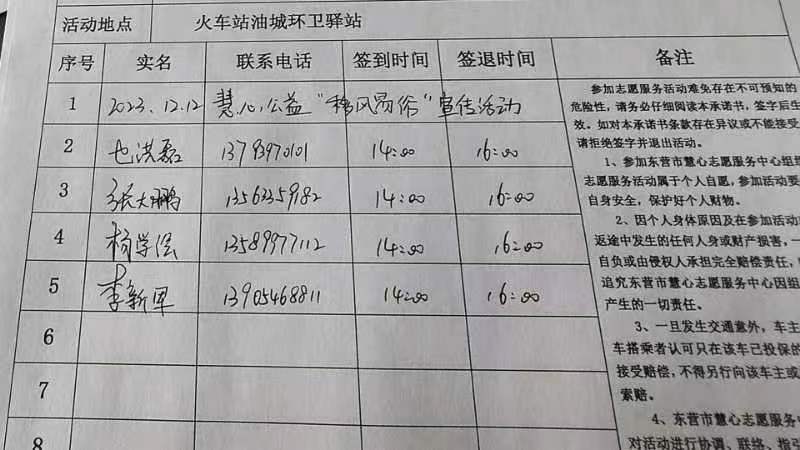 活动地点 火车站油城环卫驿站
序号 实名 联系电话 签到时间 签退时间 备注
1 2023.12.12 慧心公益“移风易俗”宣传活动
2 也洪磊 13793970101 14:00 16:00
3 张大鹏 13563359182 14:00 16:00
4 杨学 13589977112 14:00 16:00
5 李新军 13905468811 14:00 16:00
6
7
8
参加志愿服务活动难免存在不可预知的
危险性,请务必仔细阅读本承诺书,签字后生
效。如对本承诺书条款存在异议或不能接受
请拒绝签字并退出活动。
1、参加东营市慧心志愿服务中心组
志愿服务活动属于个人自愿,参加活动要
自身安全,保护好个人财物。
2、因个人身体原因及在参加活动
返途中发生的任何人身或财产损害,一
自负或由侵权人承担完全赔偿责任,
追究东营市慧心志愿服务中心因组
产生的一切责任。
3、一旦发生交通意外,车主
车搭乘者认可只在该车已投保的
接受赔偿,不得另行向该车主或
索赔。
4、东营市慧心志愿服务
对活动进行协调、联络、指引